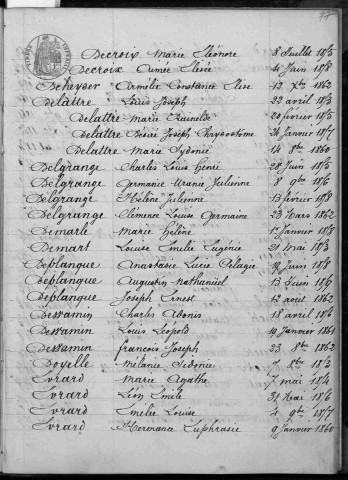 Decroix Marie Éléonore 8 Juillet 1875
Decroix Aimée Élisée 4 Juin 1878
Deheyder Armélie Constance Élise 13 Xbre 1862
Delattre Louis Joseph 22 avril 1873
Delattre Marie Reinelde 20 février 1875
Delattre Désiré Joseph Chrysostome 24 Janvier 1877
Delattre Marie Sydonie 14 8bre 1860
Delgrange Charles Louis Henri 28 Juin 1875
Delgrange Germanie Uranie Julienne 8 9bre 1876
Delgrange Hélène Julienne 13 février 1878
Delgrange Clémence Louise Germaine 23 Mars 1862
Demarle Marie Hélène 1er Janvier 1878
Demart Louise Emélie Eugénie 21 mai 1873
Deplanque Anastasie Lucie Pélagie Juin 1878
Deplanque Augustin Nathaniel 13 Juin 1876
Deplanque Joseph Ernest 12 août 1862
Dessamin Charles Abonis 18 avril 1876
Dessamin Louis Léopold 19 Janvier 1861
Dessamin François Joseph 23 8bre 1862
Doyelle Mélanie Sidonie 7 8bre 1873
Évrard Marie Agathe 7 mai 1874
Évrard Léon Émile 31 Mars 1876
Évrard Émélie Louise 4 9bre 1877
Évrard Hermance Euphrasie 9 Janvier 1860